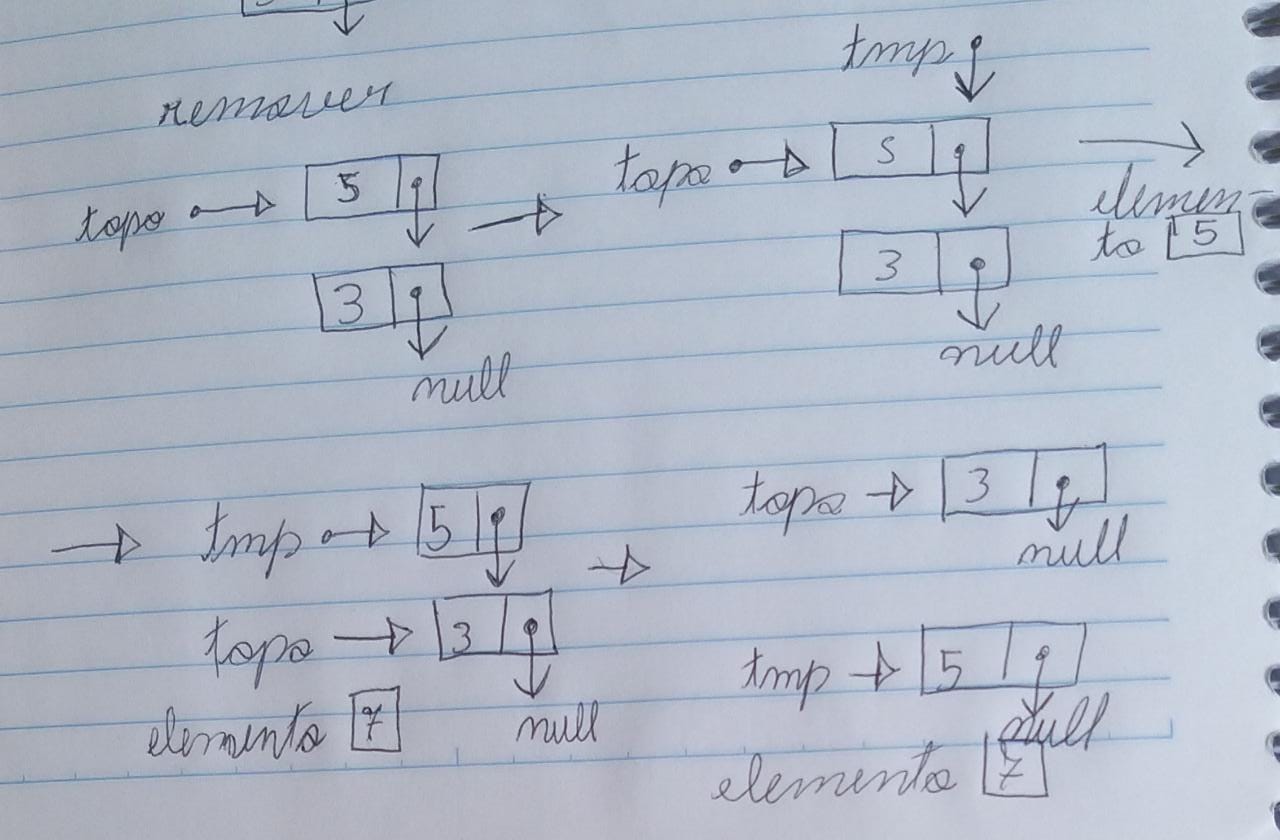 remover
topo 5
3
null
tmp
topo 5
3
null
elemen-
to 5
tmp 5
topo 3
null
elemento 7
topo 3
null
tmp 5
null
elemento 7